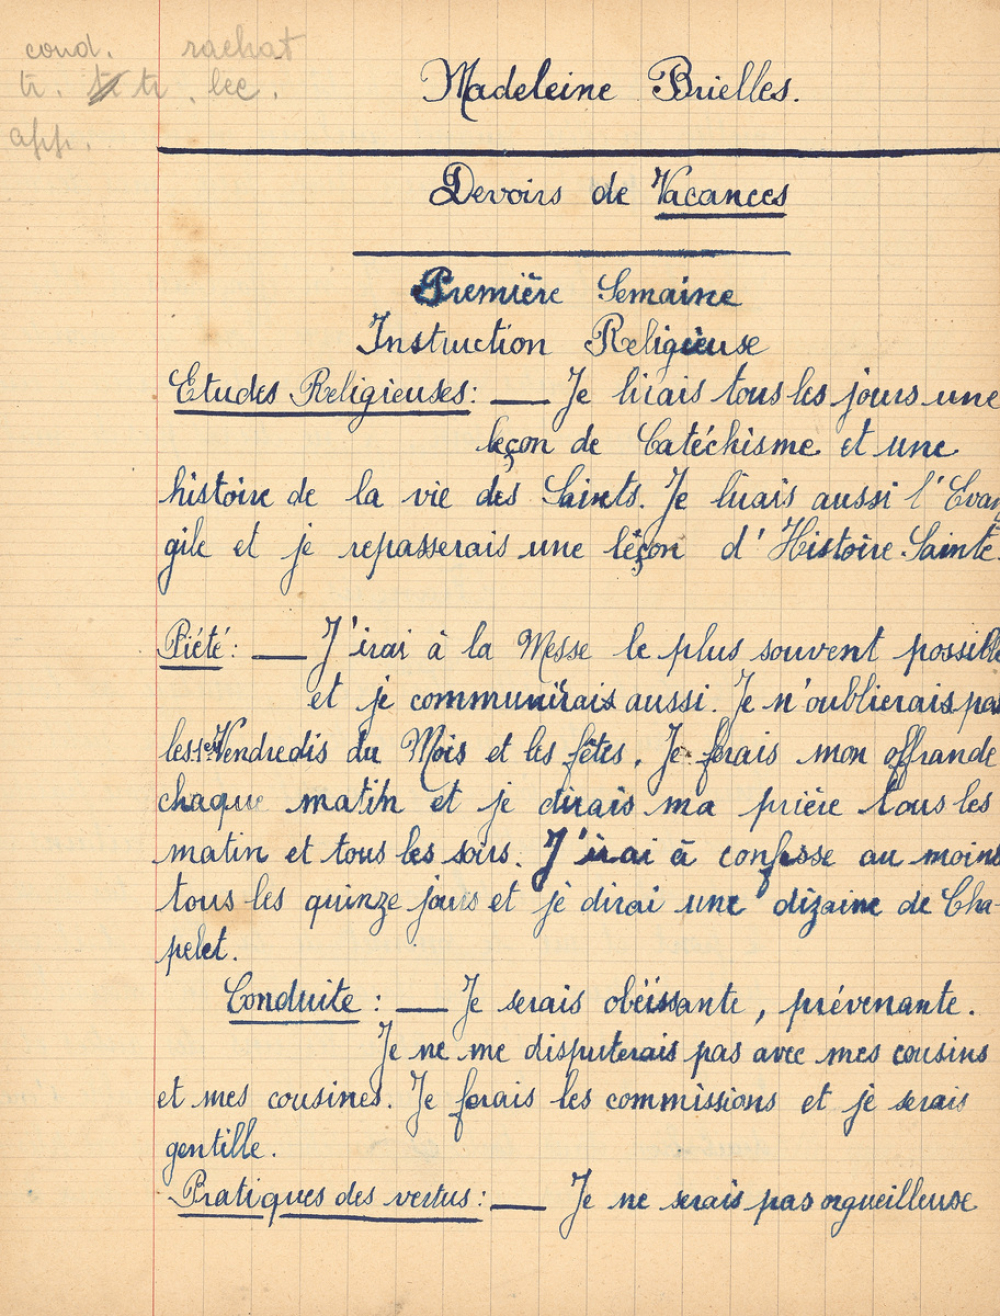 cond. rachat
tr. tr. lec.
app.
Madeleine Brielles.
Devoirs de Vacances
Première Semaine
Instruction Religieuse
Etudes Religieuses: — Je lirais tous les jours une
leçon de Catéchisme et une
histoire de la vie des Saints. Je lirais aussi l'Evan
gile et je repasserais une lèçon d'Histoire-Sainte.
Piété: — J'irai à la Messe le plus souvent possible
et je communirais aussi. Je n'oublierais pas
les 1er Vendredis du Mois et les fêtes. Je ferais mon offrande
chaque matin et je dirais ma prière tous les
matin et tous les soirs. J'irai à confesse au moins
tous les quinze jours et je dirai une dizaine de Cha-
pelet.
Conduite: — Je serais obéissante, prévenante.
Je ne me disputerais pas avec mes cousins
et mes cousines. Je ferais les commissions et je serais
gentille.
Pratiques des vertus: — Je ne serais pas orgueilleuse